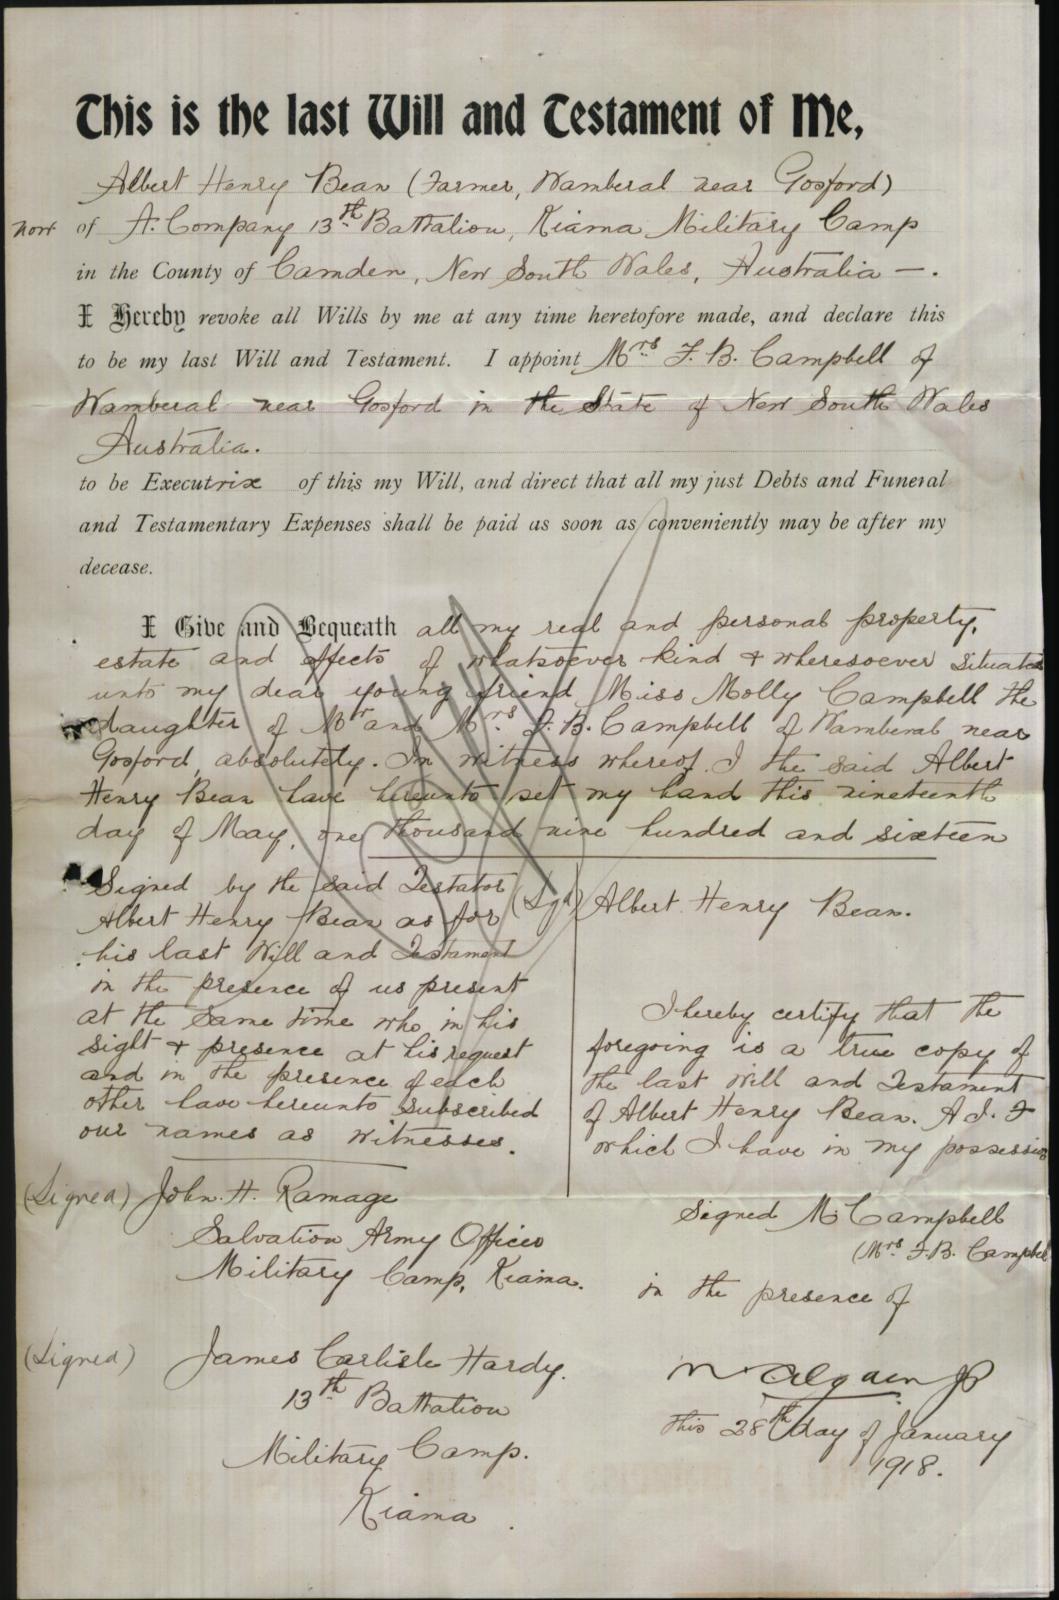 This is the last Will and Testament of Me,
Albert Henry Bean (Farmer, Wamberal near Gosford)
now of A. Company 13th Battalion, Kiama Military Camp
in the County of Camden, New South Wales, Australia —.
I Hereby revoke all Wills by me at any time heretofore made, and declare this
to be my last Will and Testament. I appoint Mrs F. B. Campbell of
Wamberal near Gosford in the State of New South Wales
Australia.
to be Executrix of this my Will, and direct that all my just Debts and Funeral
and Testamentary Expenses shall be paid as soon as conveniently may be after my
decease.
I Give and Bequeath all my real and personal property,
estate and effects of whatsoever kind & wheresoever situated
unto my dear young friend Miss Molly Campbell the
daughter of Mr and Mrs. F. B. Campbell of Wamberal near
Gosford, absolutely. In witness whereof I the said Albert
Henry Bean have hereunto set my hand this nineteenth
day of May, one thousand nine hundred and sixteen
Signed by the said Testator
Albert Henry Bean as for
his last Will and Testament
in the presence of us present
at the same time who in his
sight & presence at his request
and in the presence of each
other have hereunto subscribed
our names as witnesses.
(Signed) John. H. Ramage
Salvation Army Officer
Military Camp, Kiama.
(Signed) James Carlisle Hardy.
13th Battalion
Military Camp.
Kiama.
(Sgd) Albert Henry Bean.
I hereby certify that the
foregoing is a true copy of
the last Will and Testament
of Albert Henry Bean. A.I.F
which I have in my possession
Signed M. Campbell
(Mrs. F.B. Campbell
in the presence of
JP
this 28th day of January
1918.